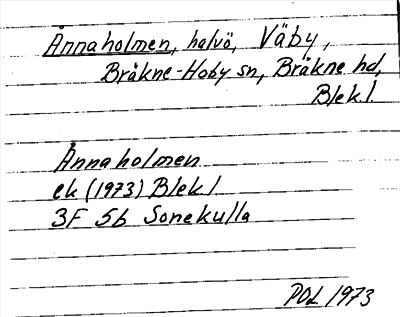 Ännaholmen, halvö, Väby,
Bräkne-Hoby sn, Bräkne hd,
Blekl.
Ännaholmen
ek (1973) Blekl
3F 5b Sonekulla
POL 1973